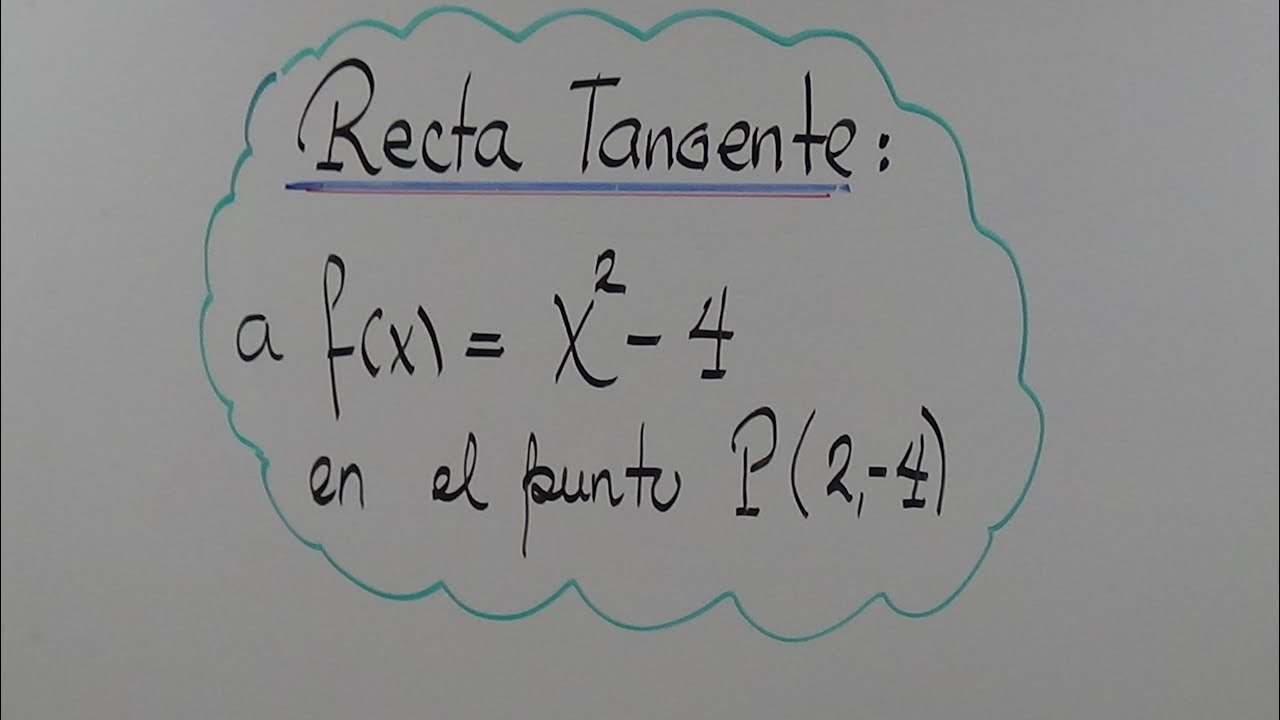 Recta Tangente:
a f(x) = x² - 4
en el punto P(2,-4)